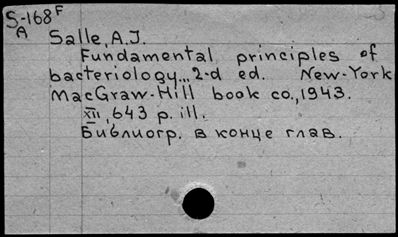 S-168F
A
Salle, A.J.
Fundamental principles of
bacteriology... 2-d ed. New-York
MacGraw-Hill book co., 1943.
XII, 643 p. ill.
Библиогр. в конце глав.